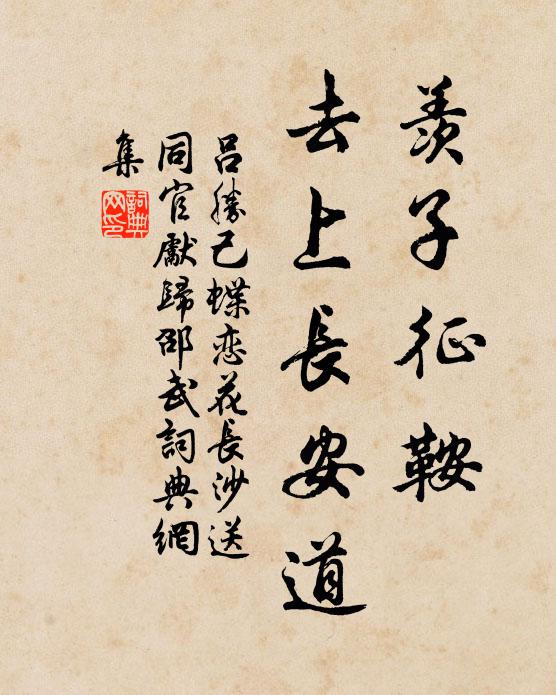 羨子征鞍
去上長安道
呂勝己蝶恋花長沙送
同官獻歸邵武詞典網
集
詞典
网印